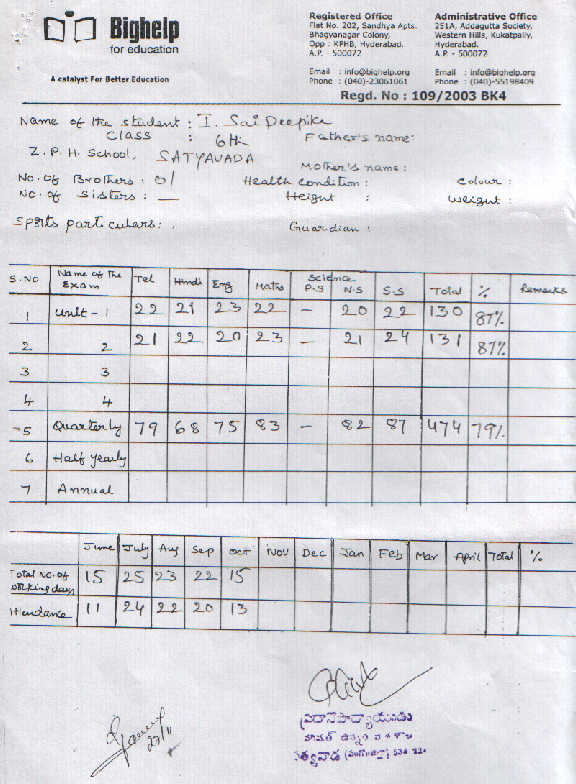 Bighelp
for education
A catalyst For Better Education
Registered Office
Flat No. 202, Sandhya Apts.
Bhagyanagar Colony,
Opp : KPHB, Hyderabad.
A.P. - 500072
Email : info@bighelp.org
Phone : (040)-23061061
Administrative Office
251A, Addagutta Society,
Western Hills, Kukatpally,
Hyderabad.
A.P. - 500072
Email : info@bighelp.org
Phone : (040)-55198409
Regd. No : 109/2003 BK4
Name of the student : I. Sai Deepika
Class : 6th Father's name:
Z.P.H. School, SATYAVADA Mother's name :
No. of Brothers : 01 Health condition : Colour :
No. of Sisters : — Height : Weight :
Sports particulars : . Guardian :
S.NO Name of the Exam Tel Hindi Eng Maths Science P.S N.S S.S Total % Remarks
1 Unit - 1 22 21 23 22 - 20 22 130 87%
2 2 21 22 20 23 - 21 24 131 87%
3 3
4 4
5 Quarterly 79 68 75 83 - 82 87 474 79%
6 Half yearly
7 Annual
June July Aug Sep Oct Nov Dec Jan Feb Mar April Total %
Total No. of working days 15 25 23 22 15
Attendance 11 24 22 20 13